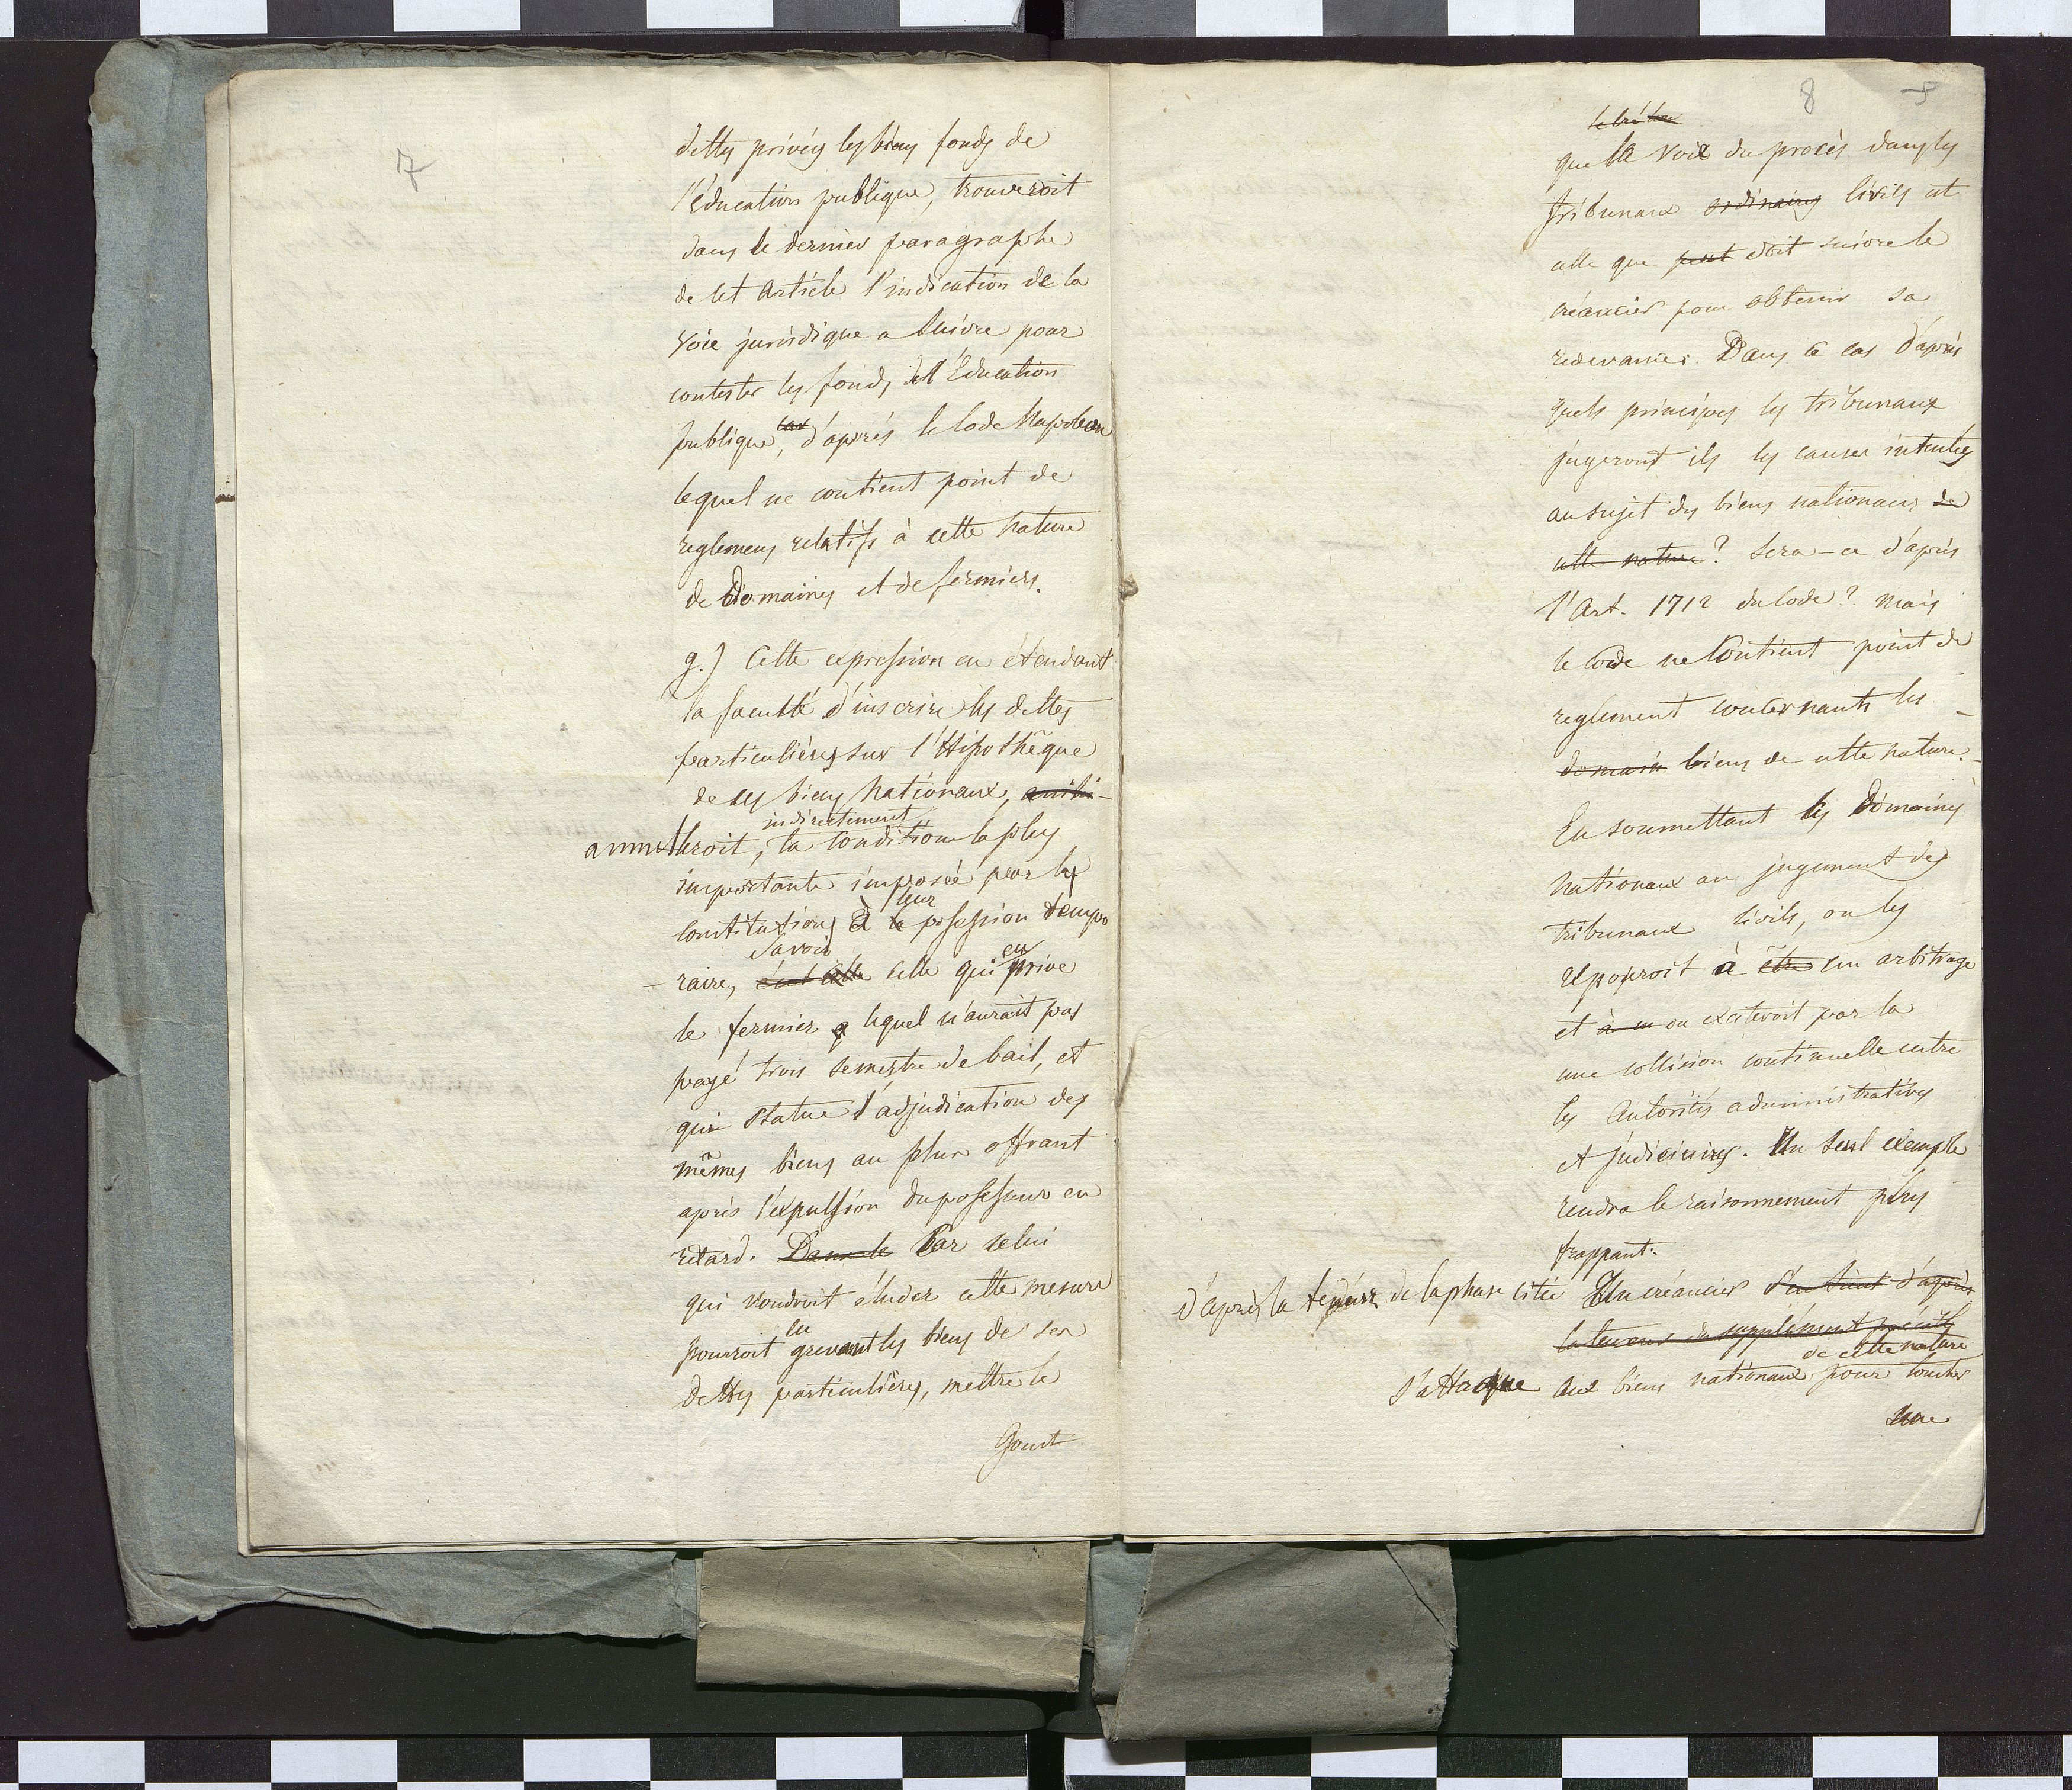 7
dettes privées les biens fonds de
l'Éducation publique, trouveroit
dans le dernier paragraphe
de cet Article l'indication de la
voie juridique a suivre pour
contester les fonds de l'Education
publique, car d'aprés le Code Napoleon
lequel ne contient point de
reglemens relatifs à cette nature
de Domaines et de fermiers.
g.) Cette expression en étendant
la faculté d'inscrire les dettes
particuliéres sur l'Hipothêque
de ces biens Nationaux,
indirectement
annulleroit, la condition la plus
importante imposée par les
leur
constitutions à la possession tempo
savoir
raire, celle qui en prive
le fermier lequel n'aurait pas
payé trois semestre de bail, et
qui statue l'adjudication des
mêmes biens au plus offrant
aprés l'expulsion du possesseur en
retard. Dans le Car celui
qui voudroit éluder cette mesure
en
pourroit grevant les biens de ses
dettes particuliêres, mettre le
Gouvt
8
que la voie du procès dans les
tribunaux ordinaires civils est
celle que peut doit suivre le
créancier pour obtenir sa
redevance. Dans ce cas d'aprés
quels principes les tribunaux
jugeront ils les causes intentées
au sujet des biens nationaux de
cette nature? Sera-ce d'aprés
l'Art. 1712 du Code? Mais
le Code ne contient point de
reglement concernants les
domain biens de cette nature.
En soumettant les Domaines
Nationaux au jugement des
tribunaux civils, on les
exposeroit à être un arbitrage
et on exciteroit par la
une collision continuelle entre
les Autorités administratives
et judiciaires. Un seul exemple
rendra le raisonnement plus
frappant.
d'après la teneur de la phase citée Un créancier d'aprés
la teneur du supplément précité
de cette nature
s'attaque aux biens nationaux pour toucher
une